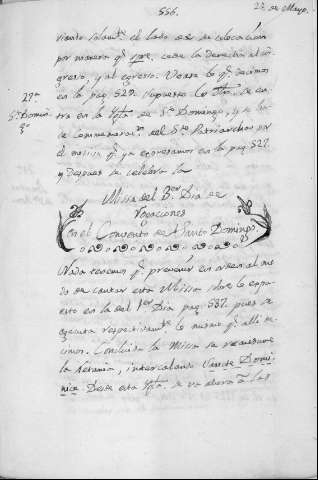 556.
28 de Mayo.
viendo solam.te el lado de su colocacion
por manera q.e ppre. cede la derecha al in-
greso, y al egreso. Vease lo q.e decimos
en la pag. 529. Supuesto
27.a
S.to Domin.o
en-
tra en la Ygla. de S.to Domingo, y se ha-
ce commemorac.on del S.to Patriarcha por
el mismo q.e ya expresamos en la pag. 527.
y despues se celebra la
Missa del 3.er Dia de
Rogaciones
en el Convento de Santo Domingo.
Nada tenemos q.e prevenir en orden al mo-
do de cantar esta Missa sobre lo expu-
esto en la del 1.er Dia pag. 537. pues se
executa respectivam.te lo mismo q.e alli di-
cimos. Concluida la Missa se reassume
la Letania, intercalando Sancte Domi-
nice. Desde esta Ygla. se va ahora a las